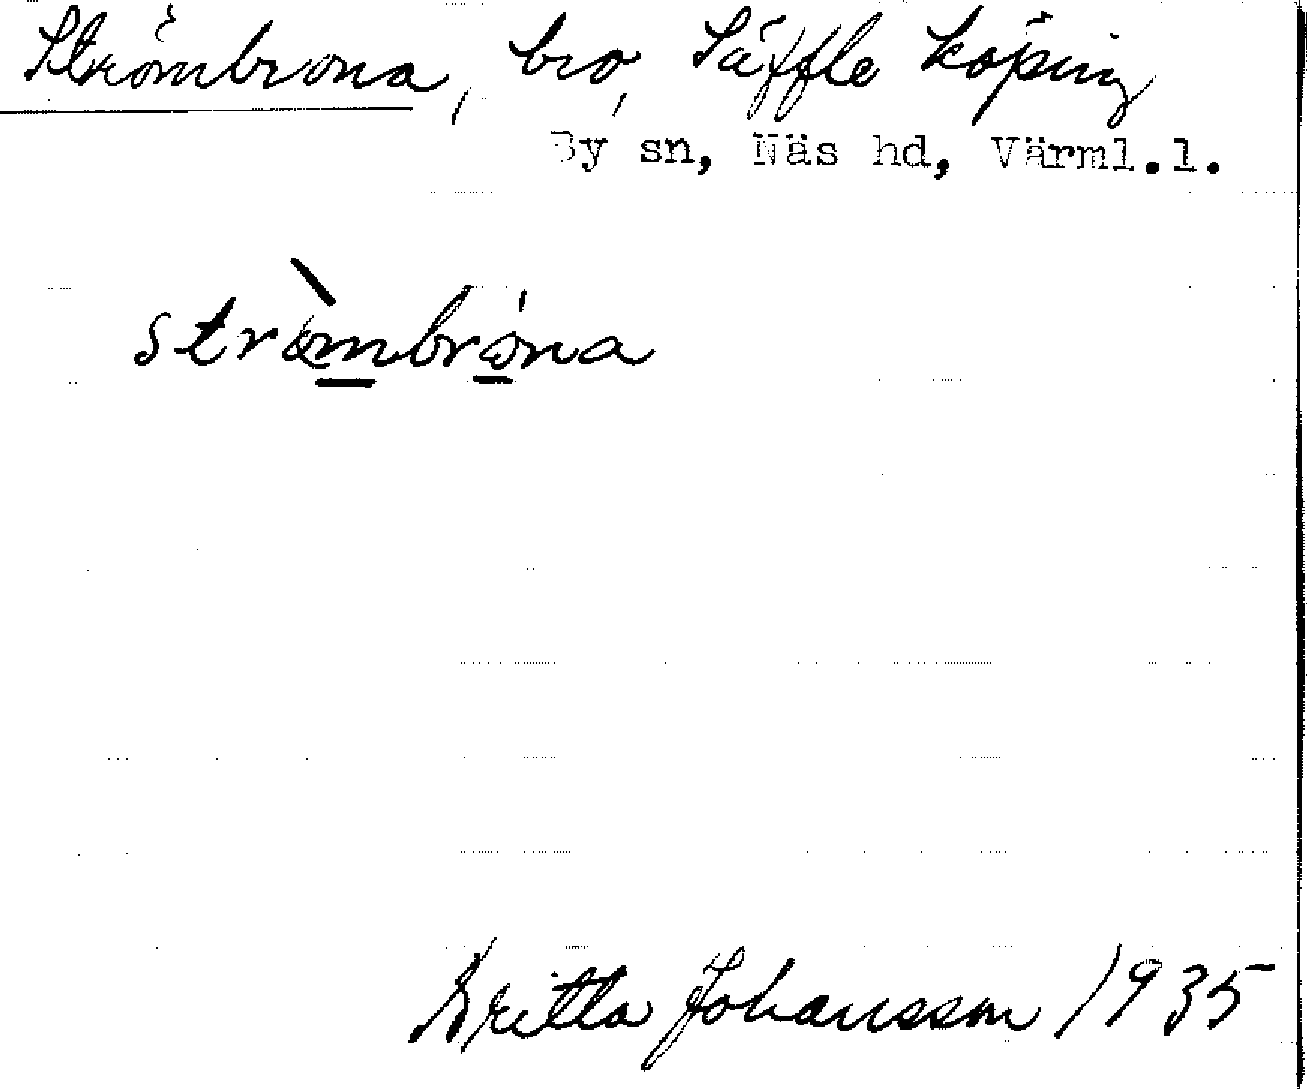 Strömbrona, bro, Säffle köping
By sn, Näs hd, Värml.l.
strömbróna
Britta Johansson 1935